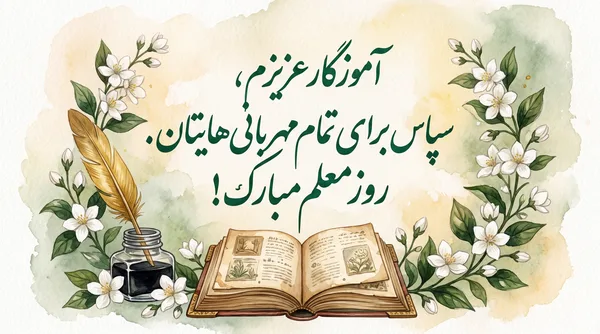 آموزگار عزیزم،
سپاس برای تمام مهربانی‌هایتان.
روز معلم مبارک!